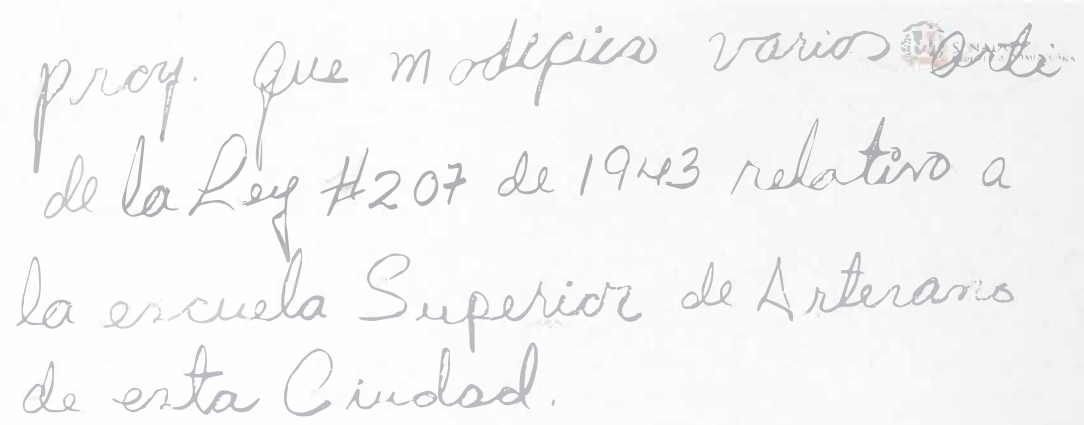 proy. que modifica varios arti
de la Ley #207 de 1943 relativo a
la escuela Superior de Artesano
de esta Ciudad.